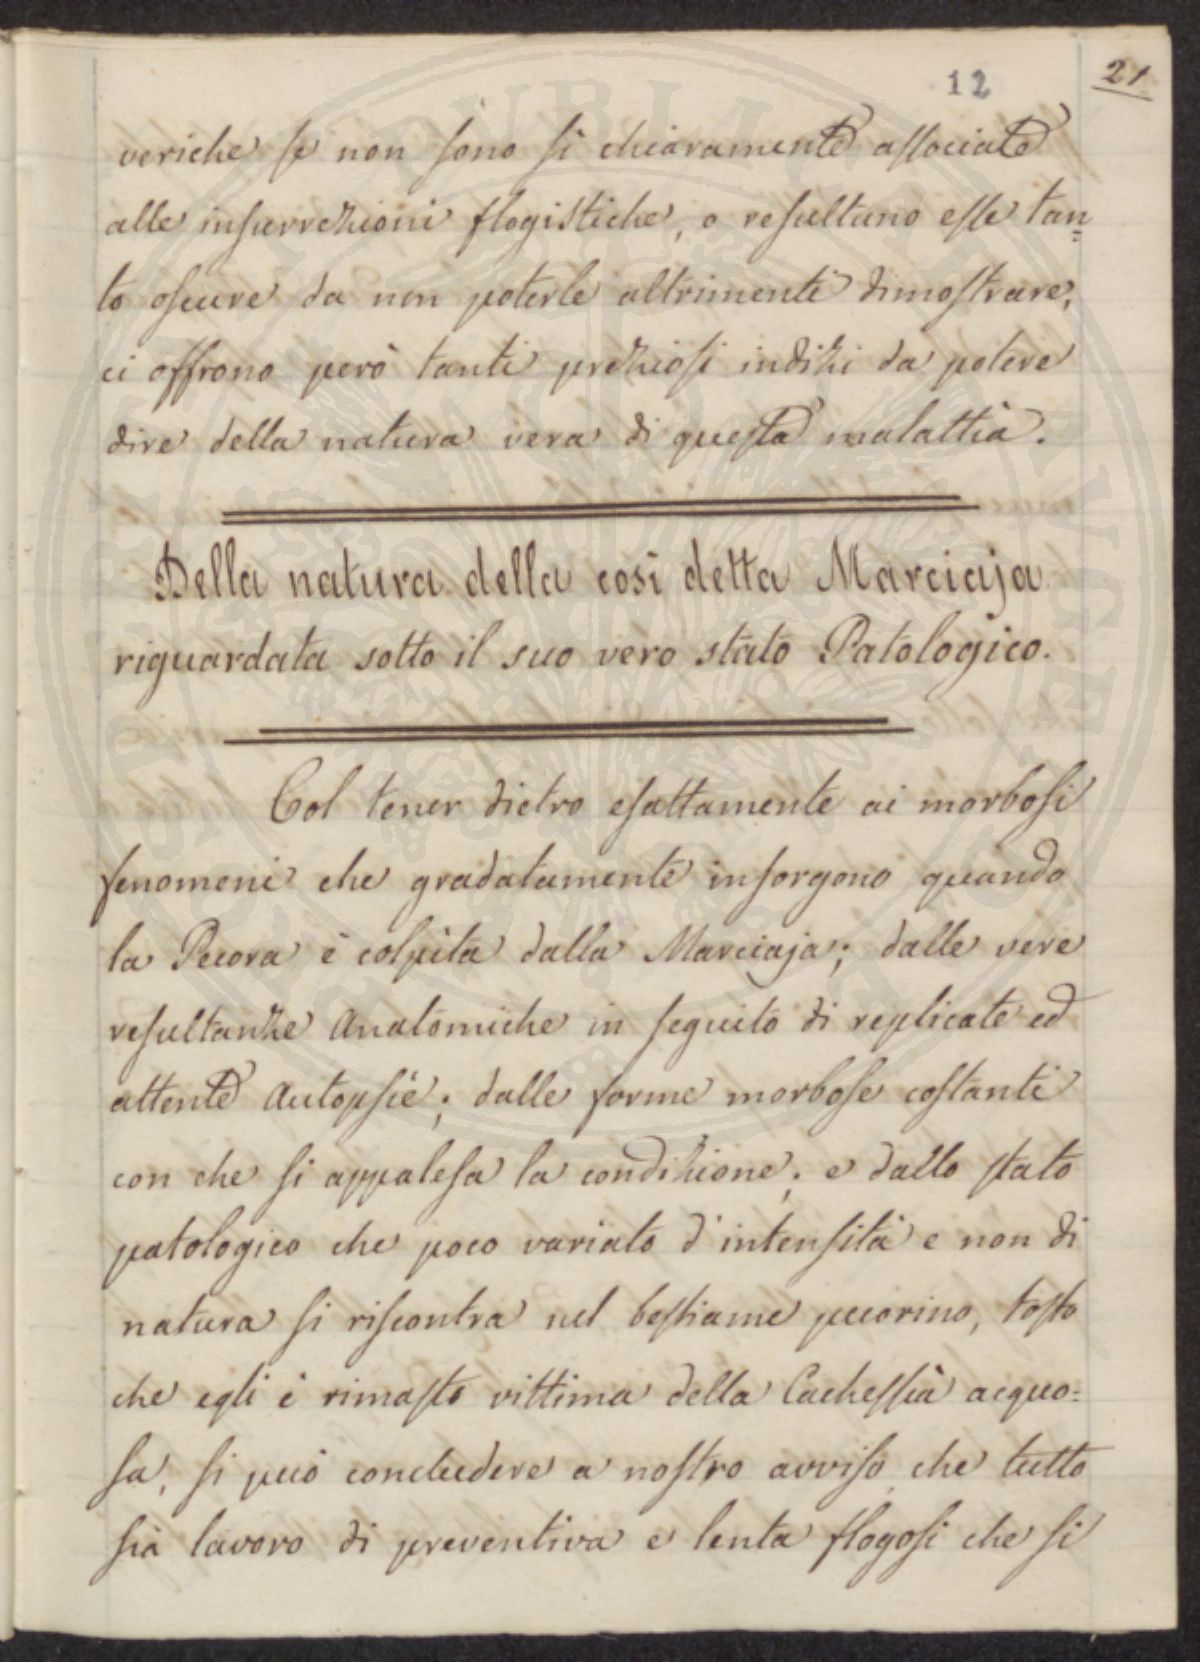 12
21
veriche se non sono sì chiaramente associate
alle insurrezioni flogistiche, o resultano esse tan=
to oscure da non poterle altrimenti dimostrare,
ci offrono però tanti preziosi indizi da potere
dire della natura vera di questa malattia.
Della natura della così detta Marciaja
riguardata sotto il suo vero stato Patologico.
Col tener dietro esattamente ai morbosi
fenomeni che gradatamente insorgono quando
la Pecora è colpita dalla Marciaja; dalle vere
resultanze Anatomiche in seguito di replicate ed
attente Autopsie; dalle forme morbose costanti
con che si appalesa la condizione; e dallo stato
patologico che poco variato d'intensità e non di
natura si riscontra nel bestiame pecorino, tosto
che egli è rimasto vittima della Cachessia acquo=
sa, si può concludere a nostro avviso, che tutto
sia lavoro di preventiva e lenta flogosi che si